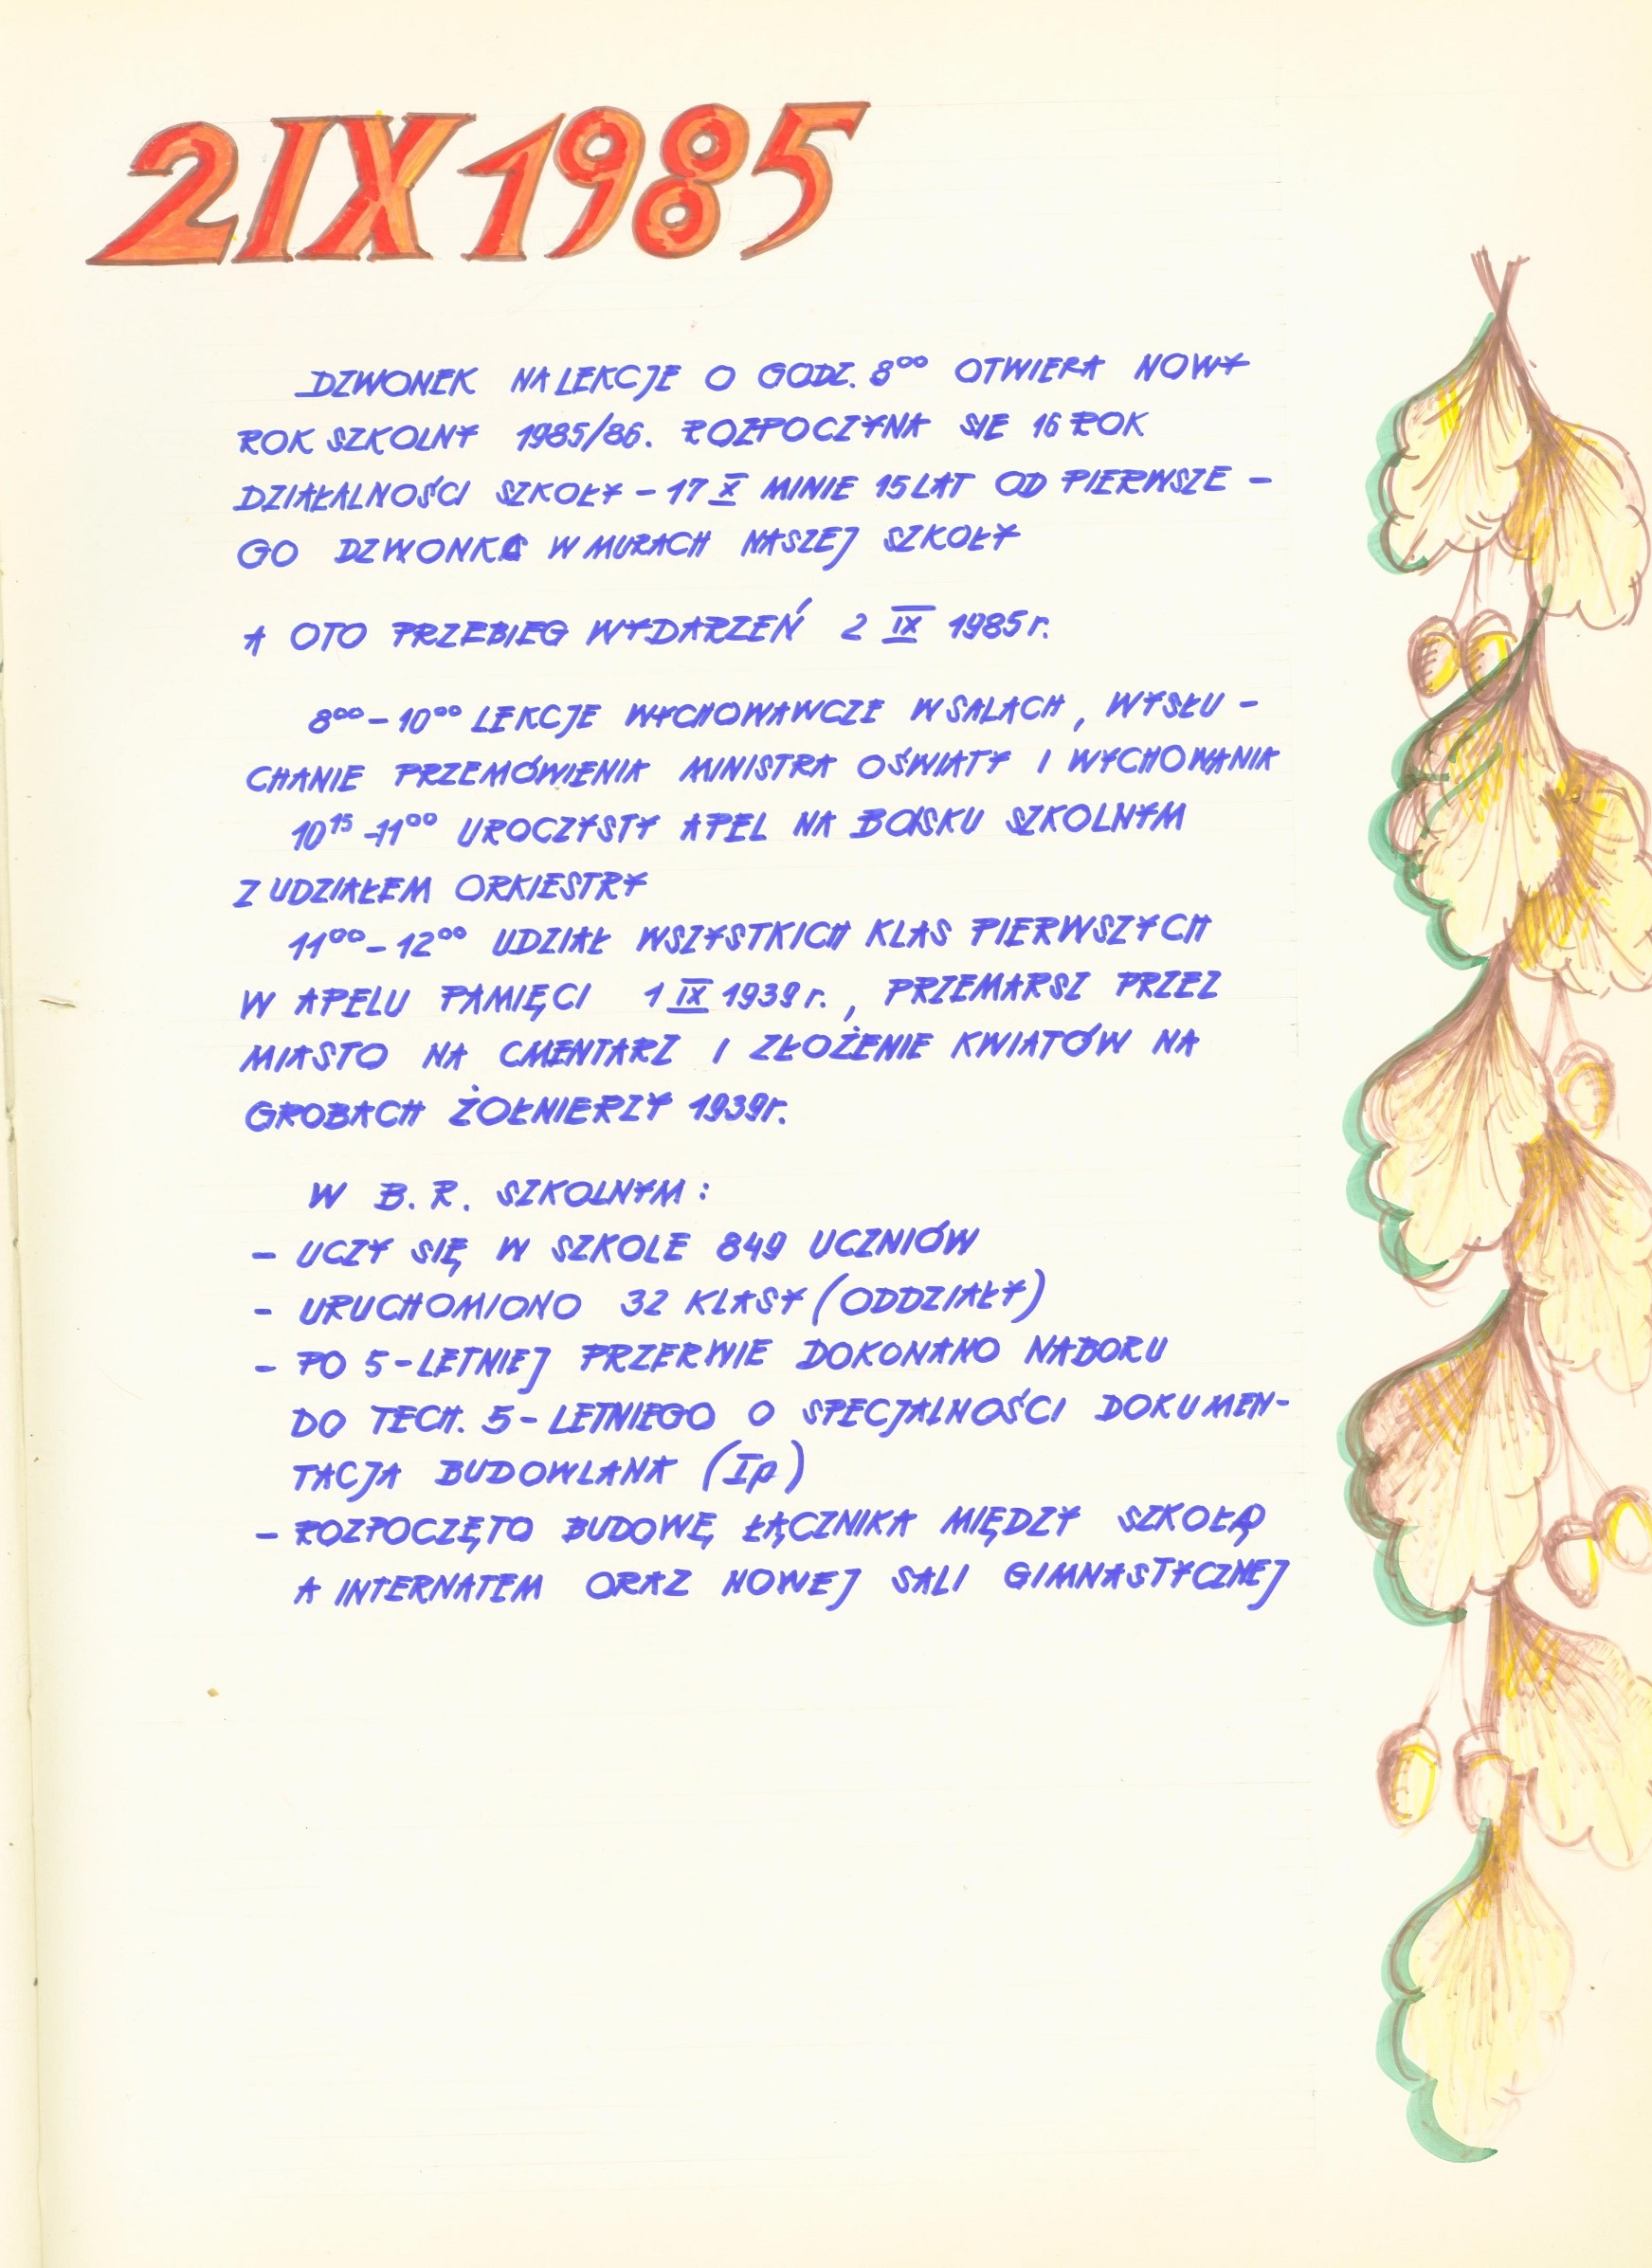 2 IX 1985
DZWONEK NA LEKCJE O GODZ. 8⁰⁰ OTWIERA NOWY
ROK SZKOLNY 1985/86. ROZPOCZYNA SIE 16 ROK
DZIAŁALNOŚCI SZKOŁY – 17 X MINIE 15 LAT OD PIERWSZE –
GO DZWONKA W MURACH NASZEJ SZKOŁY
A OTO PRZEBIEG WYDARZEŃ 2 IX 1985 r.
8⁰⁰ – 10⁰⁰ LEKCJE WYCHOWAWCZE W SALACH, WYSŁU –
CHANIE PRZEMÓWIENIA MINISTRA OŚWIATY I WYCHOWANIA
10¹⁵ – 11⁰⁰ UROCZYSTY APEL NA BOISKU SZKOLNYM
Z UDZIAŁEM ORKIESTRY
11⁰⁰ – 12⁰⁰ UDZIAŁ WSZYSTKICH KLAS PIERWSZYCH
W APELU PAMIĘCI 1 IX 1939 r., PRZEMARSZ PRZEZ
MIASTO NA CMENTARZ I ZŁOŻENIE KWIATÓW NA
GROBACH ŻOŁNIERZY 1939r.
W B. R. SZKOLNYM :
– UCZY SIĘ W SZKOLE 849 UCZNIÓW
– URUCHOMIONO 32 KLASY (ODDZIAŁY)
– PO 5-LETNIEJ PRZERWIE DOKONANO NABORU
DO TECH. 5-LETNIEGO O SPECJALNOŚCI DOKUMEN-
TACJA BUDOWLANA (Ip)
– ROZPOCZĘTO BUDOWĘ ŁĄCZNIKA MIĘDZY SZKOŁĄ
A INTERNATEM ORAZ NOWEJ SALI GIMNASTYCZNEJ